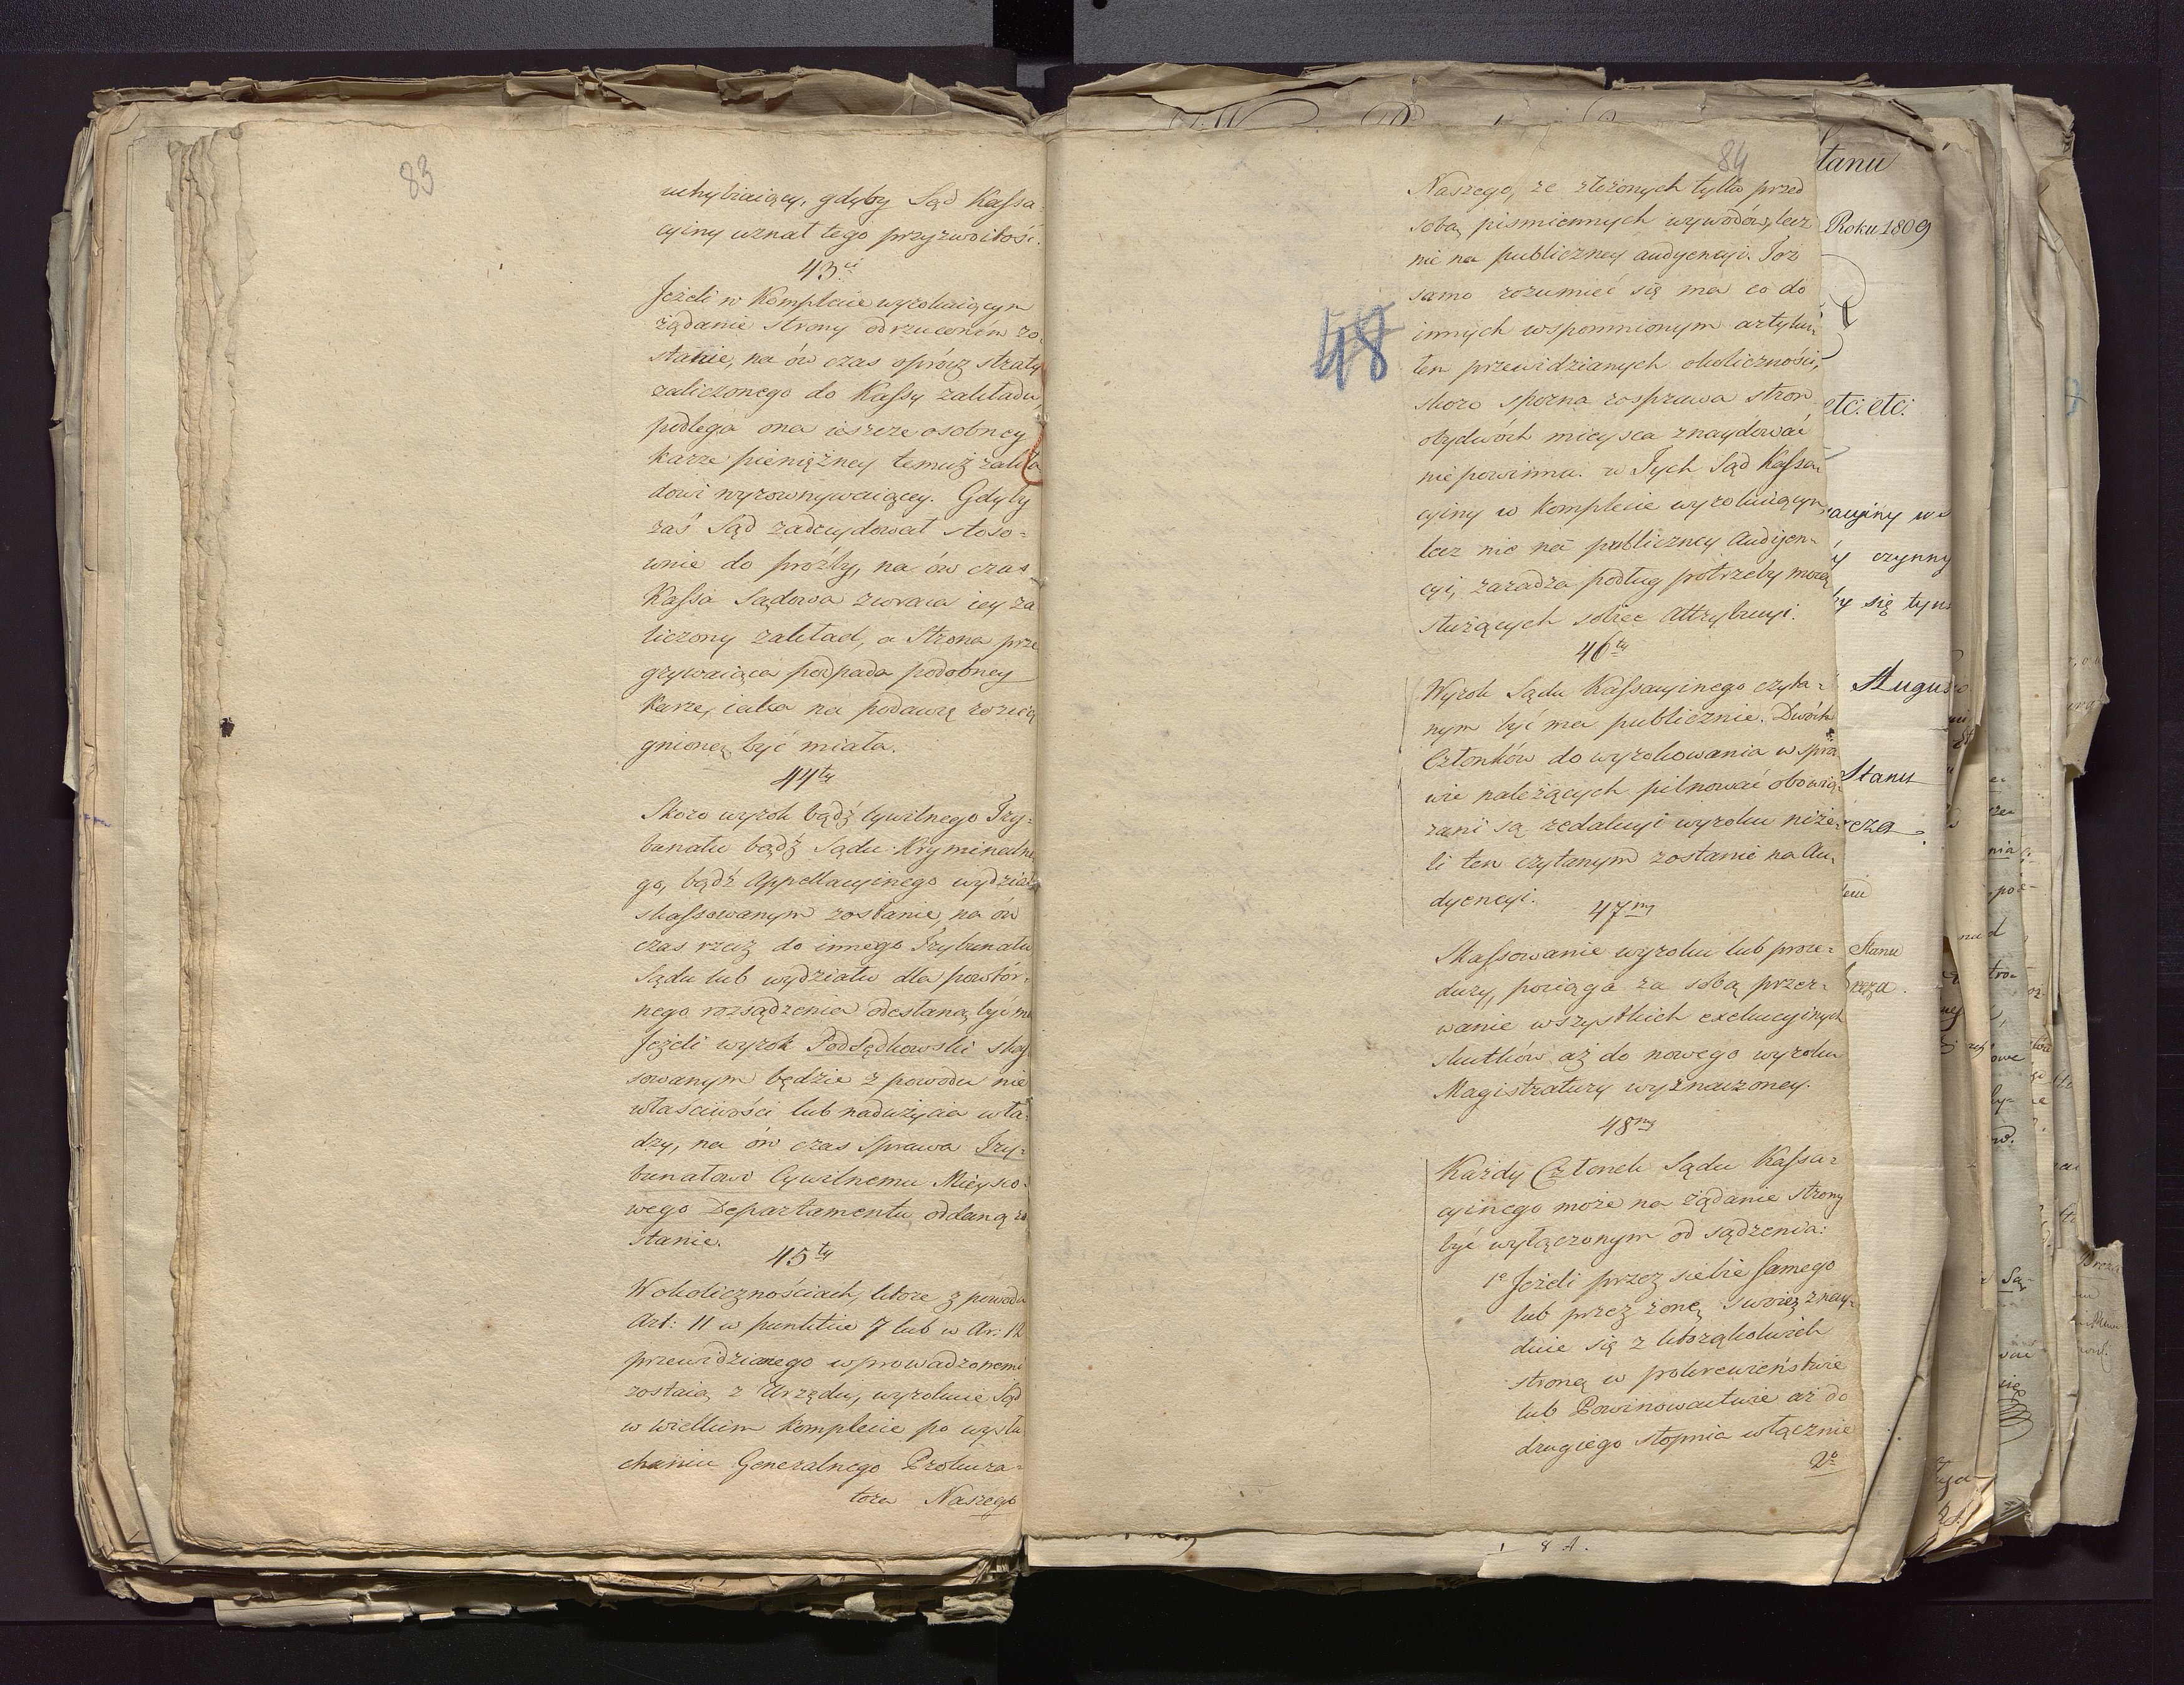 83
uchybiaiący, gdyby Sąd Kassa-
cyiny uznał tego przyzwoitość.
43ci
Jeżeli w Komplecie wyrokuiącym
żądanie Strony odrzuconém zo-
stanie, na ów czas oprócz straty
zaliczonego do Kassy zakładu,
podlega ona ieszcze osobney
karze pieniężney temuż zakła
dowi wyrownywaiącey. Gdyby
zaś Sąd zadecydował stoso-
wnie do prośby, na ów czas
Kassa Sądowa zwraca iey za
liczony zakład, a Strona prze
grywaiąca podpada podobney
karze, iaka na podawcę rozcią
gnioną być miała.
44ty
Skoro wyrok bądź Cywilnego Try-
bunału bądź Sądu Kryminalne
go, bądź Appellacyinego wydziału
skassowanym zostanie, na ów
czas rzecz do innego Trybunału
Sądu lub wydziału dla powtór-
nego rozsądzenia odesłaną być ma
Jeżeli wyrok Podsędkowski skas
sowanym będzie z powodu nie
właściwości lub nadużycia wła-
dzy, na ów czas sprawa Try-
bunałowi Cywilnemu Mieysco-
wego Departamentu oddaną zo
stanie.
45ty
W okolicznościach, które z powodu
Art: 11 w punkcie 7 lub w Ar: 12
przewidzianego wprowadzonemi
zostaią z Urzędu, wyrokuie Sąd
w wielkim komplecie po wysłu
chaniu Generalnego Prokura-
tora Naszego
84
Naszego, ze złożonych tylko przed
sobą pismiennych wywodów, lecz
nie na publiczney audyencyi. Toż
samo rozumieć się ma co do
innych wspomnionym artykuł
48
tem przewidzianych okoliczności,
skoro sporna rosprawa stron
obydwóch mieysca znaydować
nie powinna. w Tych Sąd Kassa-
cyiny w komplecie wyrokuiącym
lecz nie na publiczney Audyen-
cyi, zaradza podług potrzeby mocą
służących sobie Attrybucyi.
46ty
Wyrok Sądu Kassacyinego czyta-
nym być ma publicznie. Dwóch
Członków do wyrokowania w spra
wie należących pilnować obowią-
zani są redakcyi wyroku niże-
li ten czytanym zostanie na Au-
dyencyi.
47my
Skassowanie wyroku lub proce-
dury, pociąga za sobą przer-
wanie wszystkich exekucyinych
skutków aż do nowego wyroku
Magistratury wyznaczoney.
48my
Każdy Członek Sądu Kassa-
cyinego może na żądanie strony
być wyłączonym od sądzenia:
1e Jeżeli przez siebie samego
lub przez żonę swoię znay-
duie się z którąkolwiek
stroną w pokrewieństwie
lub Powinowactwie aż do
drugiego stopnia włącznie
2e
tanu
Roku 1809
etc. etc.
czynny
by się tym
Stanu
Stanu